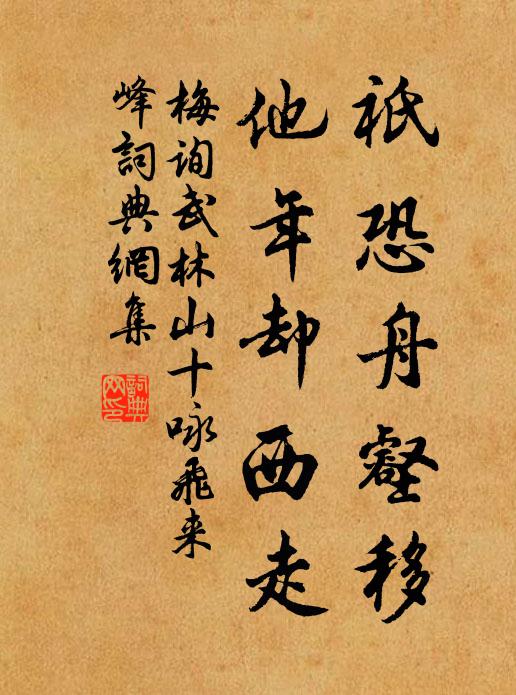 祇恐舟壑移
他年却西走
梅询武林山十咏飛来
峰詞典網集
詞典
网印